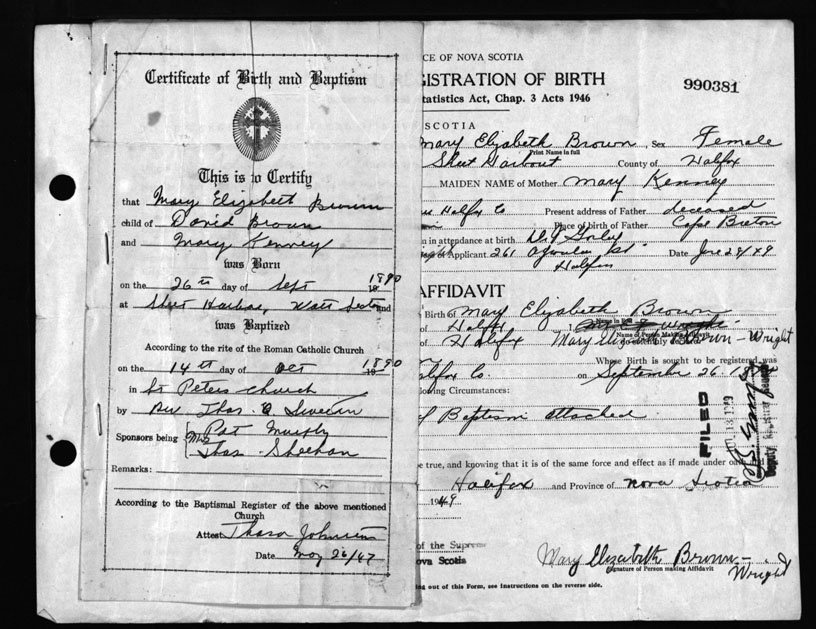 Certificate of Birth and Baptism
This is to Certify
that Mary Elizabeth Brown
child of David Brown
and Mary Kenney
was Born
on the 26th day of Sept 1890
at Sheet Harbor, Watt and
was Baptized
According to the rite of the Roman Catholic Church
on the 14th day of Oct 1890
in St Peters Church
by Rev Thos.
Sponsors being Pat Murphy
Mrs Thos Sheehan
Remarks:
According to the Baptismal Register of the above mentioned
Church
Attest Johnson
Date May 26/47
CE OF NOVA SCOTIA
GISTRATION OF BIRTH
990381
tatistics Act, Chap. 3 Acts 1946
SCOTIA
Mary Elizabeth Brown, Sex Female
Print Name in full
Sheet Harbour County of Halifax
MAIDEN NAME of Mother Mary Kenney
Halifax Co Present address of Father deceased
Place of birth of Father Cape Breton
n in attendance at birth
Applicant 261 St Date June 29/49
Halifax
AFFIDAVIT
Birth of Mary Elizabeth Brown
of Halifax I,
of Halifax Mary Elizabeth Brown-Wright
Whose Birth is sought to be registered was
lifax Co. on September 26
llowing Circumstances:
of Baptism attached
FILED
e true, and knowing that it is of the same force and effect as if made under oath
Halifax and Province of Nova Scotia
1949
of the Supreme
ova Scotia
Mary Elizabeth Brown-Wright
Signature of Person making Affidavit
ng out of this Form, see instructions on the reverse side.